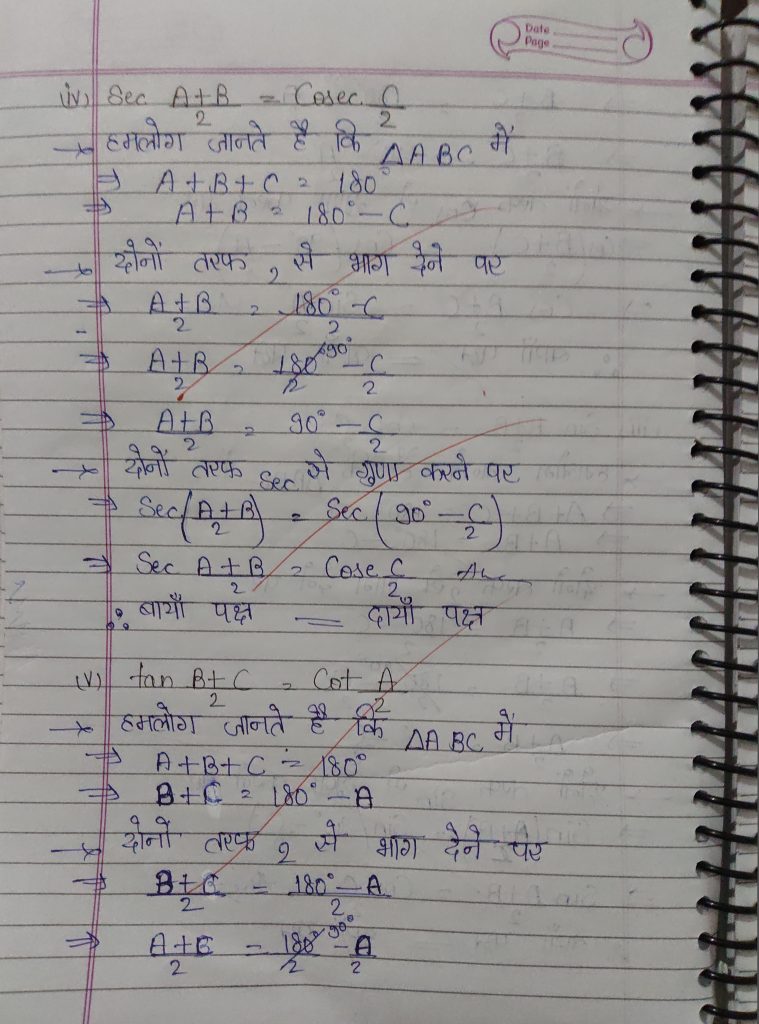 Date
Page
(iv) Sec A+B/2 = Cosec C/2
→ हमलोग जानते है कि ΔABC में
⇒ A+B+C = 180°
⇒ A+B = 180°-C
→ दोनों तरफ 2 से भाग देने पर
⇒ A+B/2 = 180°-C/2
⇒ A+B/2 = 180°/2 90° - C/2
⇒ A+B/2 = 90° - C/2
→ दोनों तरफ Sec से गुणा करने पर
⇒ Sec(A+B/2) = Sec(90° - C/2)
⇒ Sec A+B/2 = Cosec C/2
∴ बायाँ पक्ष = दायाँ पक्ष
(v) tan B+C/2 = Cot A/2
→ हमलोग जानते है कि ΔABC में
⇒ A+B+C = 180°
⇒ B+C = 180°-A
→ दोनों तरफ 2 से भाग देने पर
⇒ B+C/2 = 180°-A/2
⇒ A+C/2 = 180°/2 90° - A/2